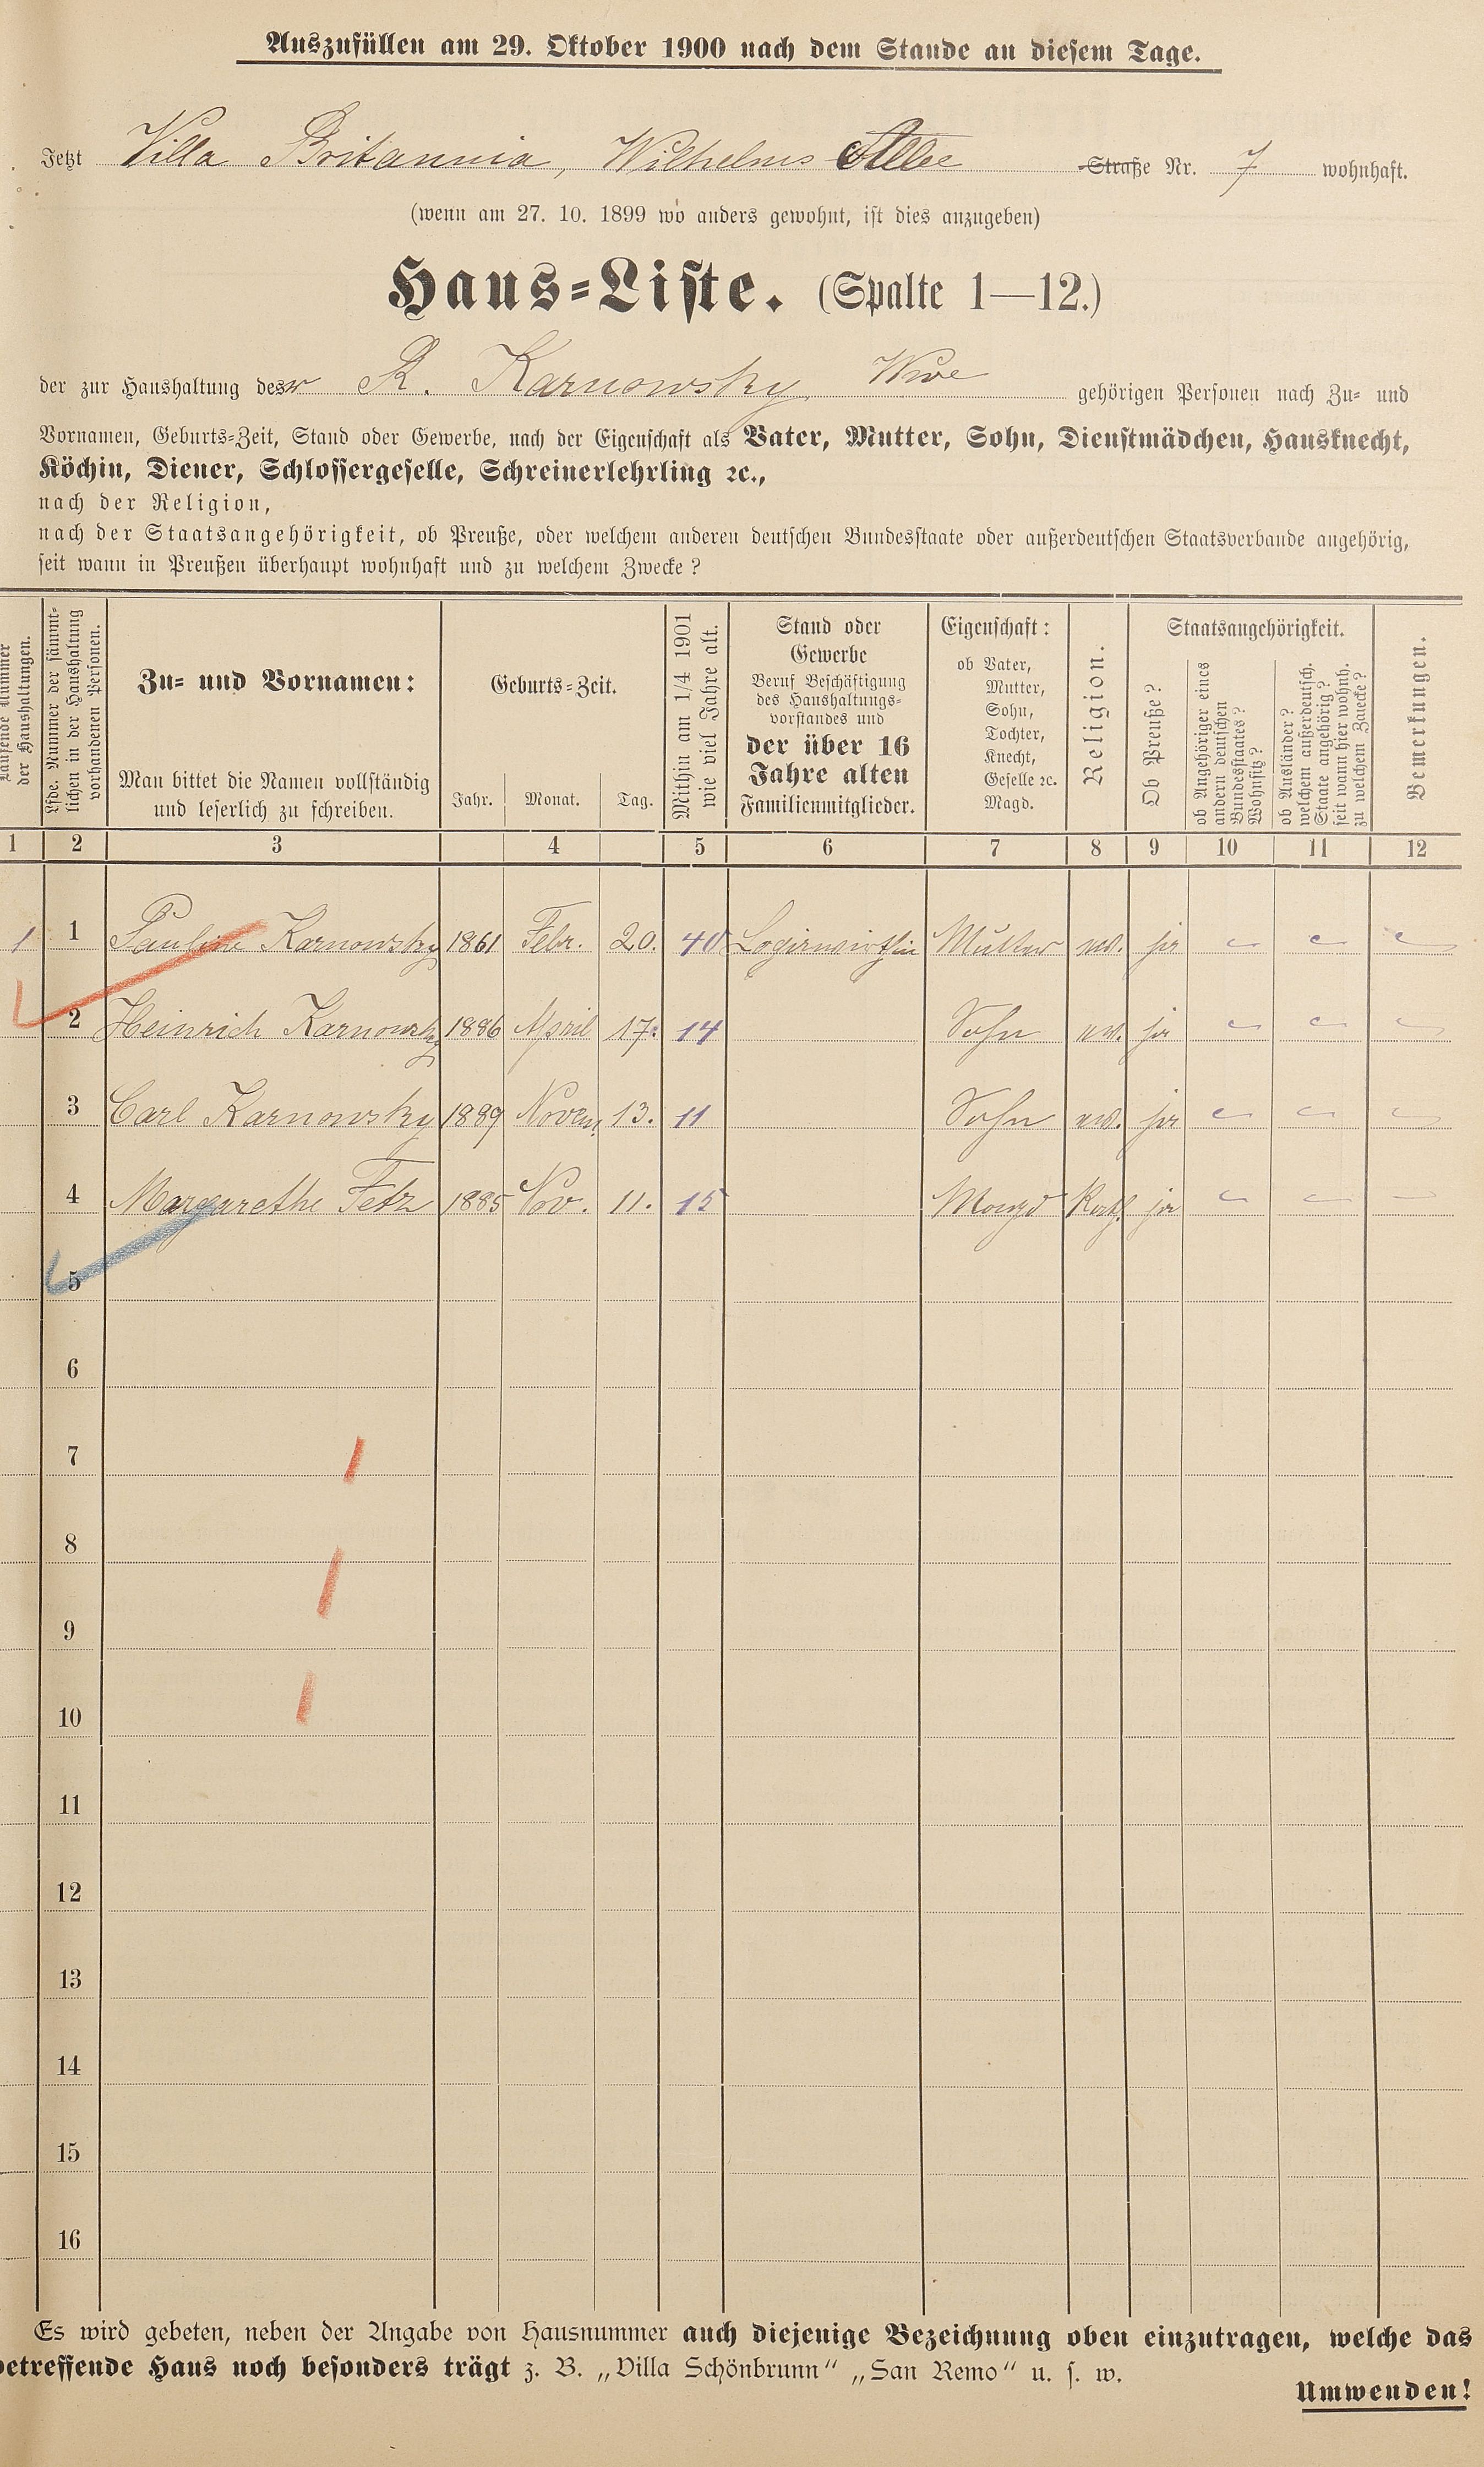 Auszufüllen am 29. Oktober 1900 nach dem Stande an diesem Tage.
Jetzt Villa Britannia, Wilhelms Allee Straße Nr. 7 wohnhaft.
(wenn am 27. 10. 1899 wo anders gewohnt, ist dies anzugeben)
Haus-Liste. (Spalte 1—12.)
der zur Haushaltung des R. Karnowsky Wwe gehörigen Personen nach Zu- und
Vornamen, Geburts-Zeit, Stand oder Gewerbe, nach der Eigenschaft als Vater, Mutter, Sohn, Dienstmädchen, Hausknecht,
Köchin, Diener, Schlossergeselle, Schreinerlehrling ꝛc.,
nach der Religion,
nach der Staatsangehörigkeit, ob Preuße, oder welchem anderen deutschen Bundesstaate oder außerdeutschen Staatsverbande angehörig,
seit wann in Preußen überhaupt wohnhaft und zu welchem Zwecke?
Laufende Nummer
der Haushaltungen.
Lfde. Nummer der sämmt-
lichen in der Haushaltung
vorhandenen Personen.
Zu- und Vornamen:
Man bittet die Namen vollständig
und leserlich zu schreiben.
Geburts-Zeit.
Jahr. Monat. Tag.
Mithin am 1/4 1901
wie viel Jahre alt.
Stand oder
Gewerbe
Beruf Beschäftigung
des Haushaltungs-
vorstandes und
der über 16
Jahre alten
Familienmitglieder.
Eigenschaft:
ob Vater,
Mutter,
Sohn,
Tochter,
Knecht,
Geselle ꝛc.
Magd.
Religion.
Staatsangehörigkeit.
Ob Preuße?
ob Angehöriger eines
andern deutschen
Bundesstaates?
Wohnsitz?
ob Ausländer?
welchem außerdeutsch.
Staate angehörig?
seit wann hier wohnh.
zu welchem Zwecke?
Bemerkungen.
1 2 3 4 5 6 7 8 9 10 11 12
1 1 Pauline Karnowsky 1861 Febr. 20. 40 Logirwirthin Mutter ev. ja
2 Heinrich Karnowsky 1886 April 17. 14 Sohn ev. ja
3 Carl Karnowsky 1889 Novem. 13. 11 Sohn ev. ja
4 Margarethe Fetz 1885 Nov. 11. 15 Magd Kath. ja
5
6
7
8
9
10
11
12
13
14
15
16
Es wird gebeten, neben der Angabe von Hausnummer auch diejenige Bezeichnung oben einzutragen, welche das
betreffende Haus noch besonders trägt z. B. „Villa Schönbrunn“ „San Remo“ u. s. w.
Umwenden!